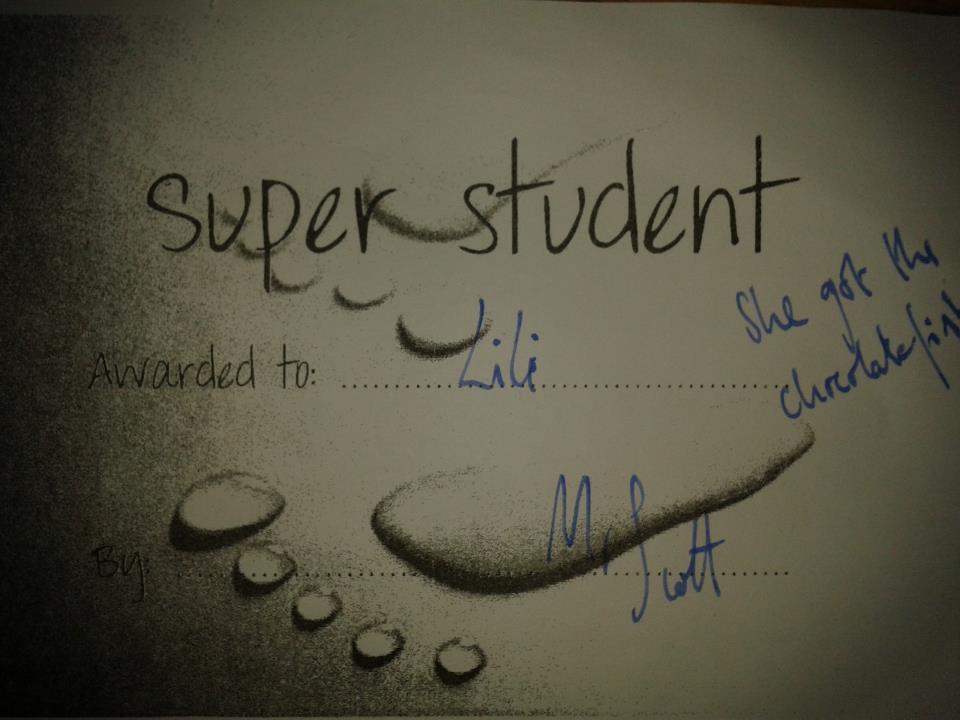 super student
She got the
chocolate fish
Awarded to: Lili
By: Mr Scott